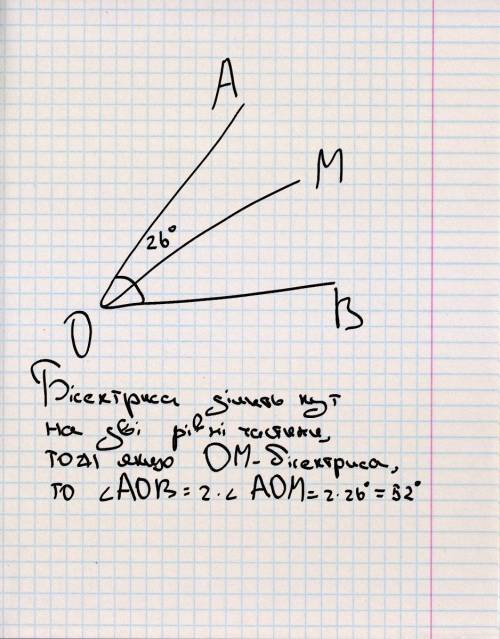 A
M
26°
B
O
Бісектриса ділить кут
на дві рівні частини,
тоді якщо OM - бісектриса,
то ∠AOB = 2 · ∠AOM = 2 · 26° = 52°